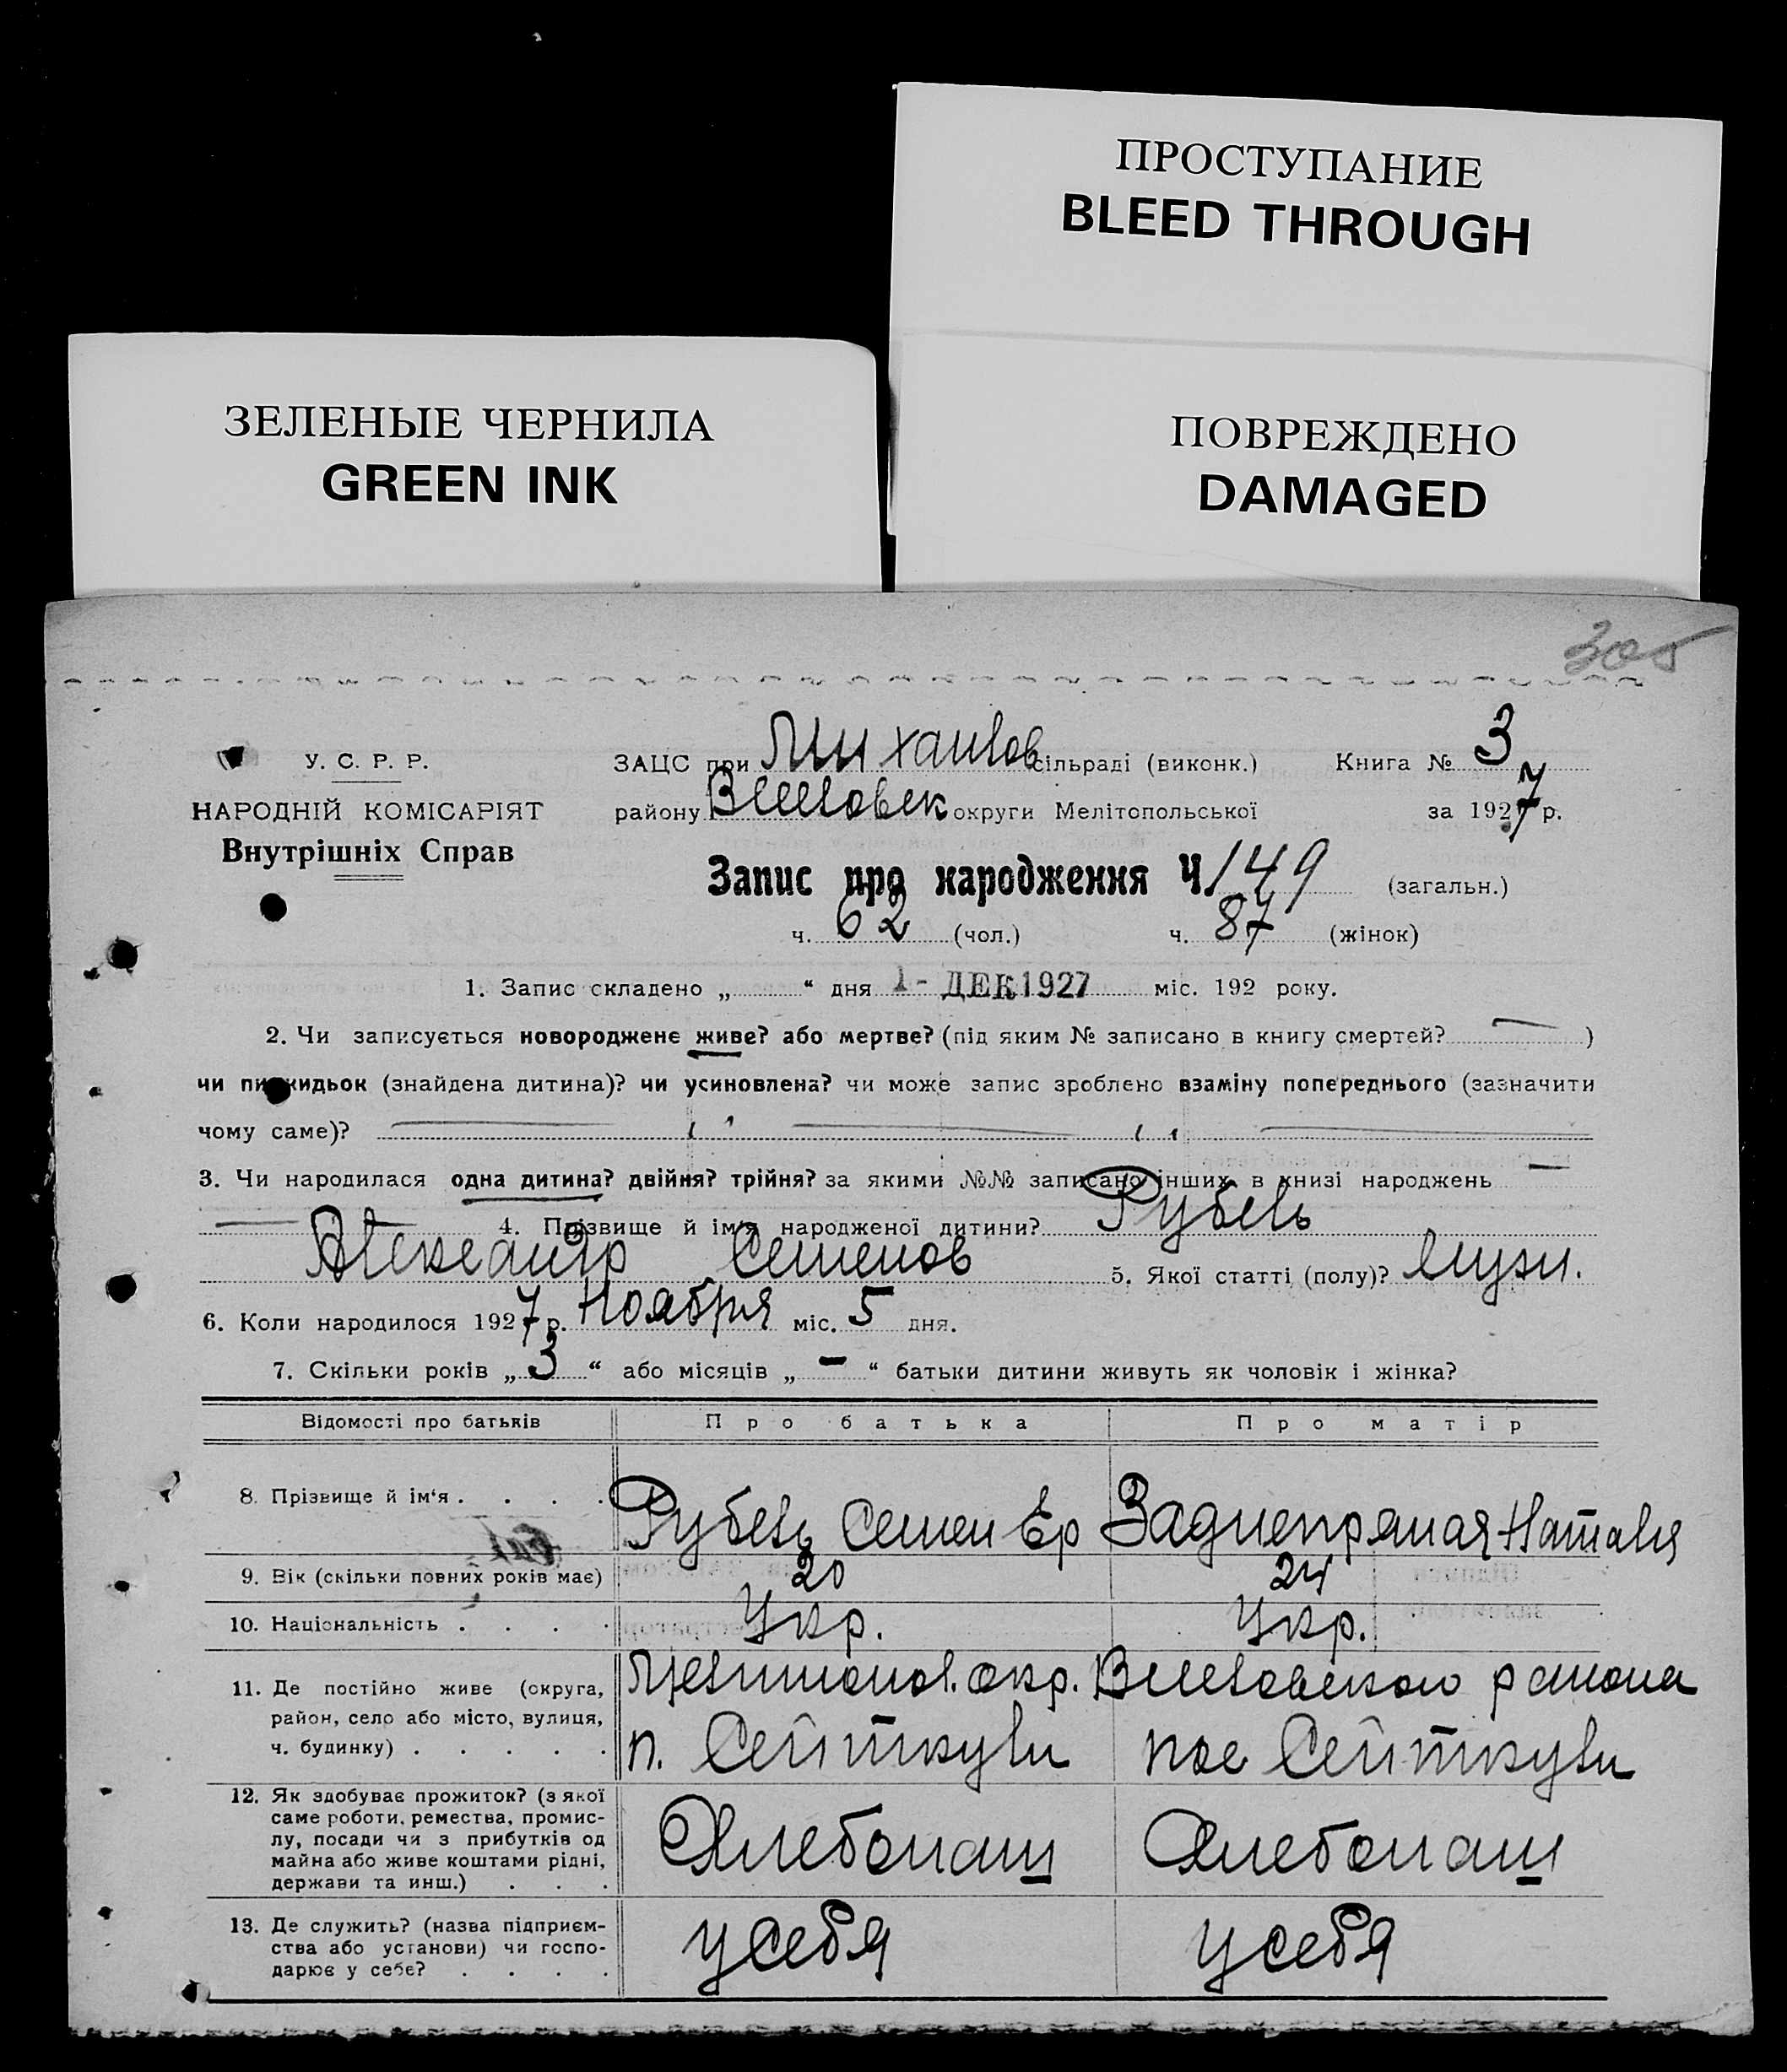 ПРОСТУПАНИЕ
BLEED THROUGH
ЗЕЛЕНЫЕ ЧЕРНИЛА
GREEN INK
ПОВРЕЖДЕНО
DAMAGED
305
У. С. Р. Р.
НАРОДНІЙ КОМІСАРІЯТ
Внутрішніх Справ
ЗАЦС при Михайлов сільраді (виконк.) Книга № 3
району Веселовск округи Мелітопольської за 1927 р.
Запис про народження Ч 149 (загальн.)
ч. 62 (чол.) ч. 87 (жінок)
1. Запис складено „ “ дня 1- ДЕК 1927 міс. 192 року.
2. Чи записується новороджене живе? або мертве? (під яким № записано в книгу смертей? — )
чи підкидьок (знайдена дитина)? чи усиновлена? чи може запис зроблено взаміну попереднього (зазначити
чому саме)? — „ — „ —
3. Чи народилася одна дитина? двійня? трійня? за якими №№ записано інших в книзі народжень —
— 4. Прізвище й ім'я народженої дитини? Рубель
Александр Семенов 5. Якої статті (полу)? мужч.
6. Коли народилося 1927 р. Ноября міс. 5 дня.
7. Скільки років „ 3 “ або місяців „ — “ батьки дитини живуть як чоловік і жінка?
Відомості про батьків Про батька Про матір
8. Прізвище й ім'я . . . . Рубель Семен Ер Заднепряная Наталия
9. Вік (скільки повних років має) 20 24
10. Національність . . . . Укр. Укр.
11. Де постійно живе (округа, район, село або місто, вулиця, ч. будинку) . . . . .
Мелитопол. окр. Веселовского района
п. Сейткули пос Сейткули
12. Як здобуває прожиток? (з якої саме роботи, ремества, промислу, посади чи з прибутків од майна або живе коштами рідні, держави та инш.) . . .
Хлебопаш Хлебопаш
13. Де служить? (назва підприємства або установи) чи господарює у себе? . . . .
у себя у себя